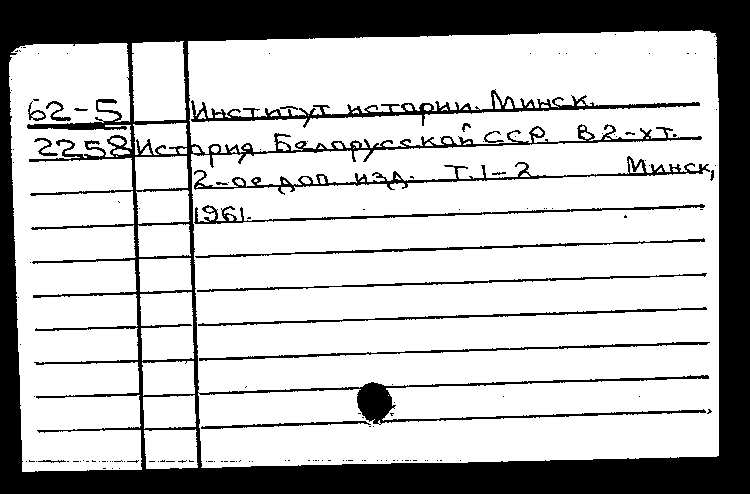 62-5 Институт истории. Минск.
2258 История Белорусской ССР. В 2-хт.
2-ое доп. изд. Т.1-2. Минск,
1961.